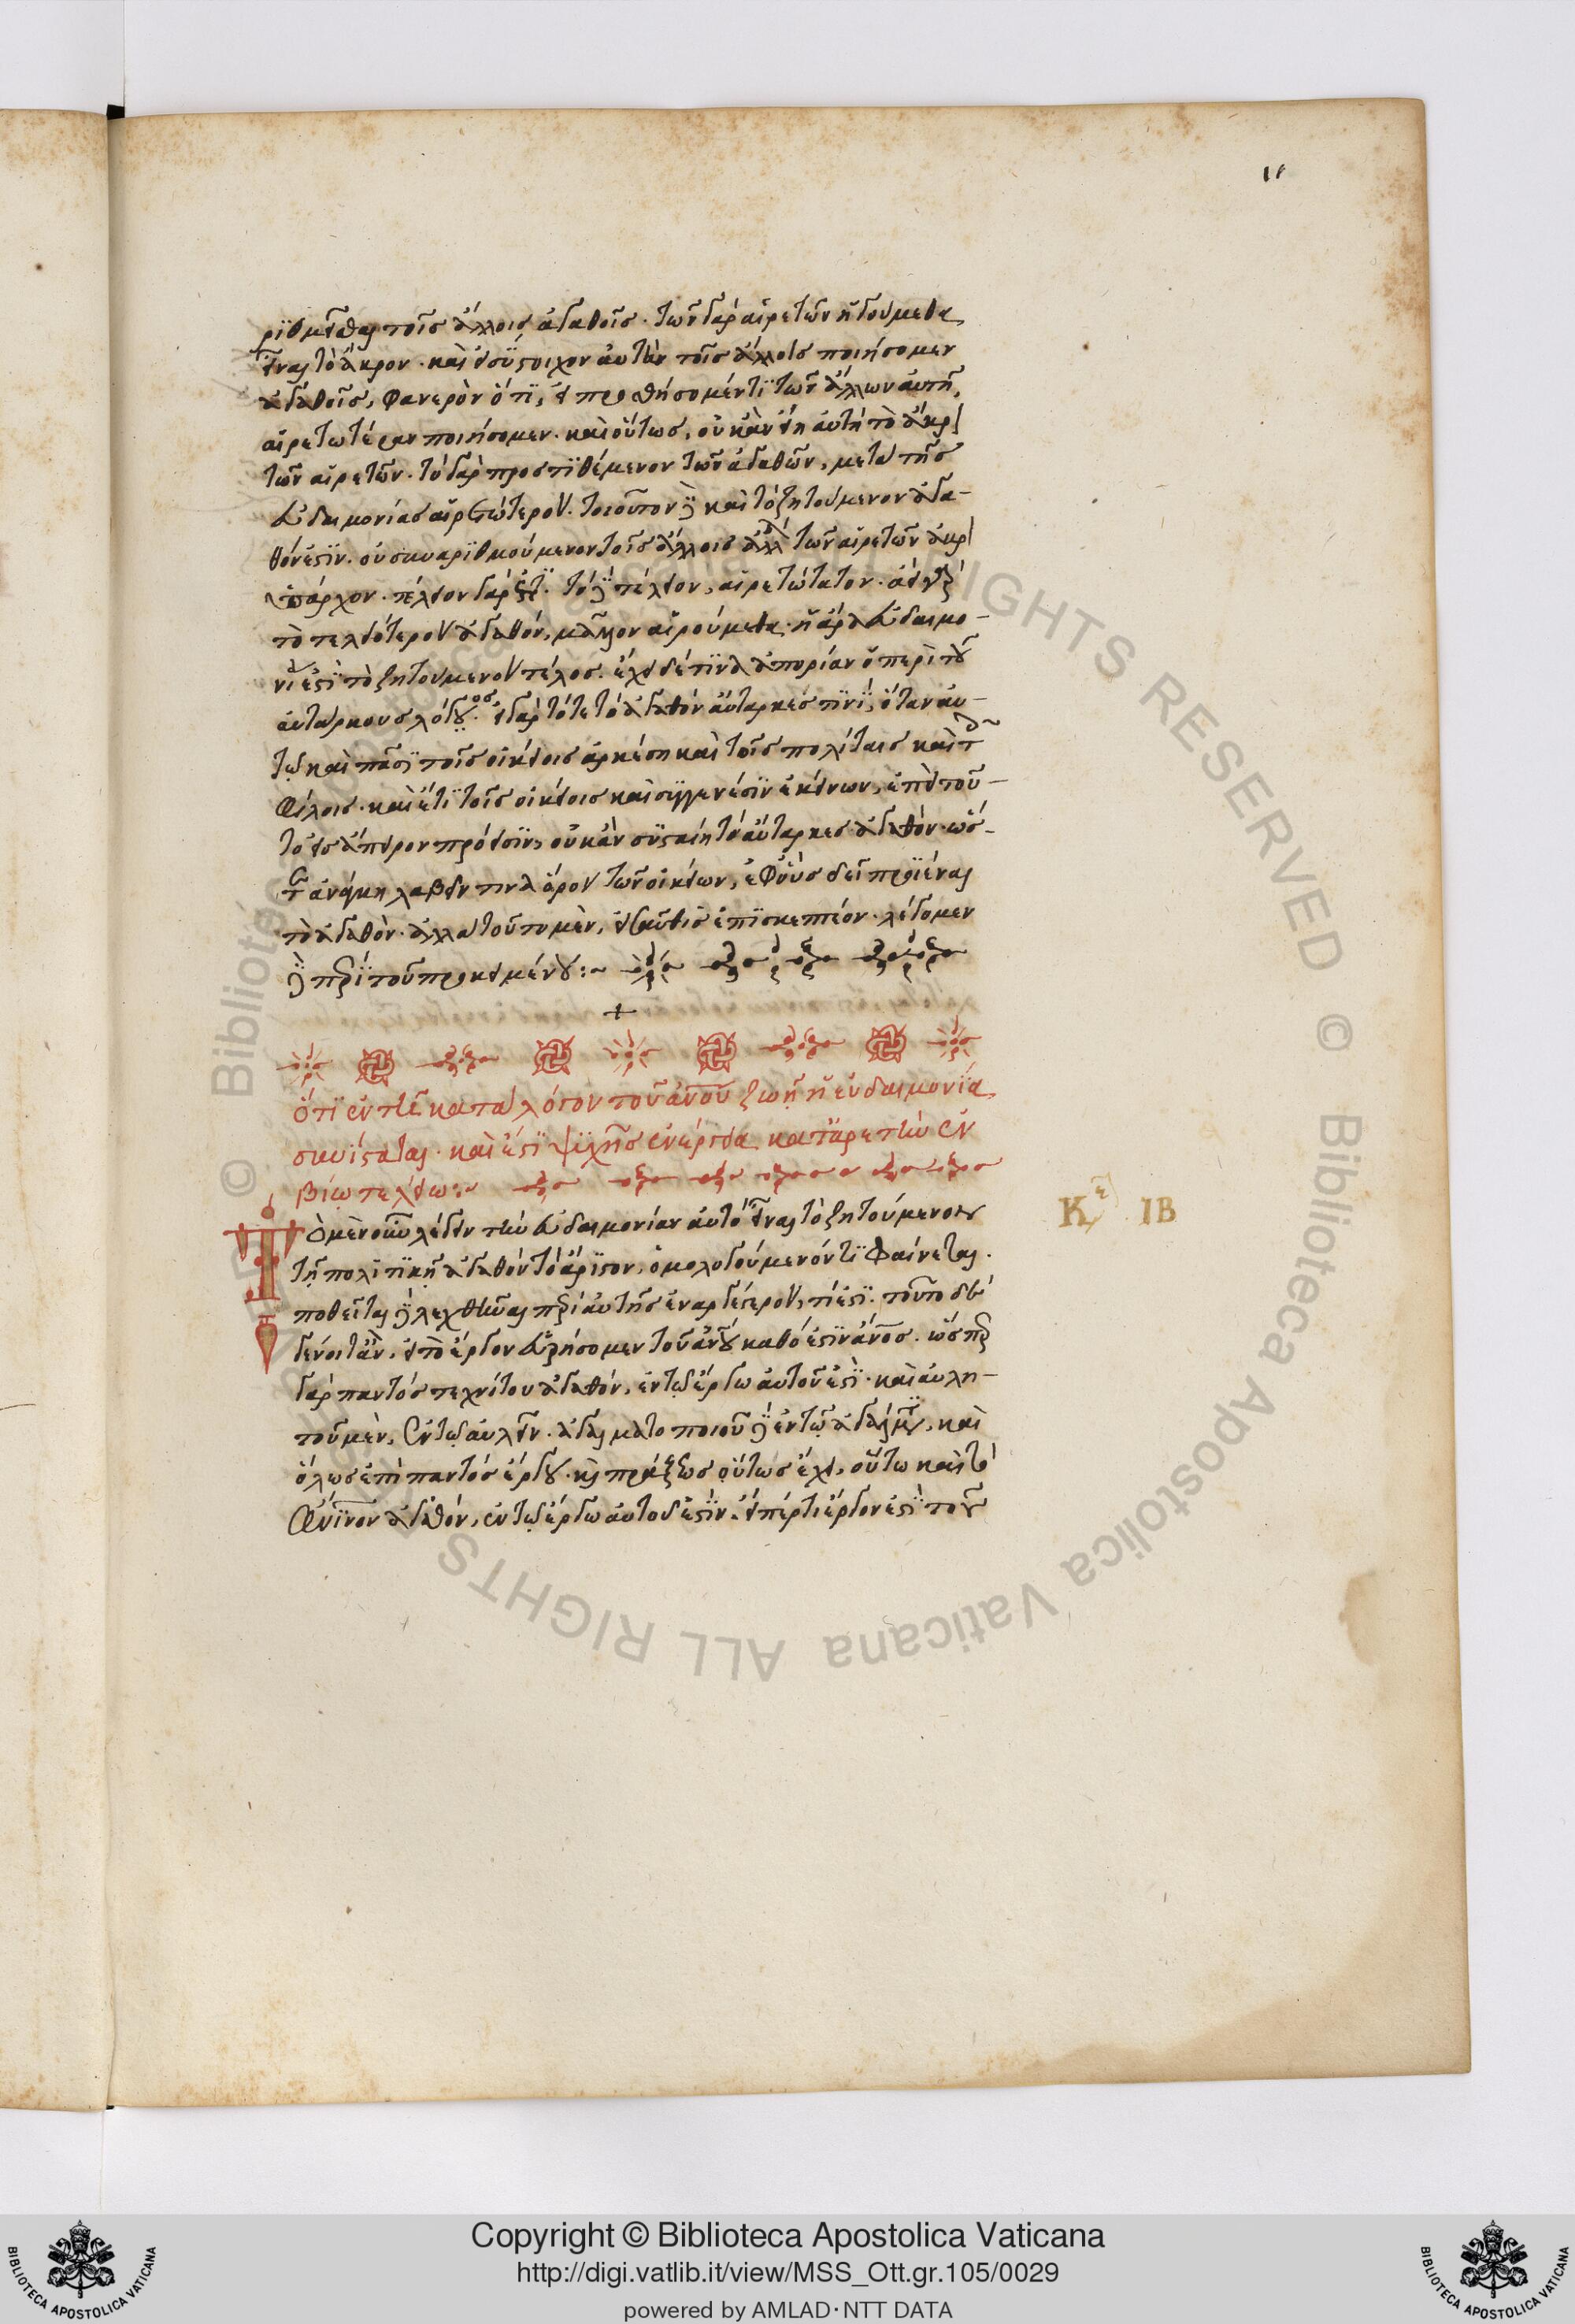 11
ριθμεῖσθαι τοῖς ἄλλοις ἀγαθοῖς. τῶν γὰρ αἱρετῶν ἡγούμεθα
εἶναι τὸ ἄκρον. καὶ εἰ σύστοιχον αὐτὴν τοῖς ἄλλοις ποιήσομεν
ἀγαθοῖς, φανερὸν ὅτι, εἰ προσθήσομέν τι τῶν ἄλλων αὐτῇ,
αἱρετωτέραν ποιήσομεν. καὶ οὕτως, οὐκ ἂν εἴη αὐτὴ τὸ ἄκρον
τῶν αἱρετῶν. τὸ γὰρ προστιθέμενον τῶν ἀγαθῶν, μετὰ τῆς
εὐδαιμονίας αἱρετώτερον. τοιοῦτον δὲ καὶ τὸ ζητούμενον ἀγα-
θόν ἐστιν. οὐ συναριθμούμενον τοῖς ἄλλοις ἀλλὰ τῶν αἱρετῶν ἄκρον
ὑπάρχον. τέλειον γάρ ἐστι. τὸ δὲ τέλειον, αἱρετώτατον. ἀεὶ γὰρ
τὸ τελειότερον ἀγαθόν, μᾶλλον αἱρούμεθα. ἡ ἄρα εὐδαιμο-
νία ἐστὶ τὸ ζητούμενον τέλος. ἔχει δέ τινα ἀπορίαν ὁ περὶ τοῦ
αὐτάρκους λόγος. εἰ γὰρ τότε τὸ ἀγαθὸν αὔταρκές τινι, ὅταν αὐ-
τῷ καὶ πᾶσι τοῖς οἰκείοις ἀρκέσῃ καὶ τοῖς πολίταις καὶ τοῖς
φίλοις. καὶ ἔτι τοῖς οἰκείοις καὶ συγγενέσιν ἐκείνων, ἐπεὶ τοῦ-
το εἰς ἄπειρον πρόεισιν, οὐκ ἂν συσταίη τὸ αὔταρκες ἀγαθόν. ὥς-
τε ἀνάγκη λαβεῖν τινα ὅρον τῶν οἰκείων, ἐφ' οὓς δεῖ προϊέναι
τὸ ἀγαθόν. ἀλλὰ τοῦτο μὲν, εἰσαῦθις ἐπισκεπτέον. λέγομεν
δὲ περὶ τοῦ προκειμένου:~
+
ὅτι ἐν τῇ κατὰ λόγον τοῦ ἀνου ζωῇ ἡ εὐδαιμονία
συνίσταται. καὶ ἔστι ψυχῆς ἐνέργεια κατ' ἀρετὴν ἐν
βίῳ τελείῳ:~
Τὸ μὲν οὖν λέγειν τὴν εὐδαιμονίαν αὐτὸ εἶναι τὸ ζητούμενον
τῇ πολιτικῇ ἀγαθὸν τὸ ἄριστον, ὁμολογούμενόν τι φαίνεται.
ποθεῖται δὲ λεχθῆναι περὶ αὐτῆς ἐναργέστερον, τί ἐστι. τοῦτο δὲ
γένοιτ' ἂν, εἰ τὸ ἔργον εὑρήσομεν τοῦ ἀνου καθό ἐστιν ἄνος. ὥσπερ
γὰρ παντὸς τεχνίτου ἀγαθὸν, ἐν τῷ ἔργῳ αὐτοῦ ἐστι. καὶ αὐλη-
τοῦ μὲν, ἐν τῷ αὐλεῖν. ἀγαλματοποιοῦ δὲ ἐν τῷ ἀγάλματι, καὶ
ὅλως ἐπὶ παντὸς ἔργου καὶ πράξεως οὕτως ἔχει, οὕτω καὶ τὸ
ἀνινον ἀγαθόν, ἐν τῷ ἔργῳ αὐτοῦ ἐστιν. εἴπερ τι ἔργον ἐστὶ τοῦ
Κε IB
Copyright © Biblioteca Apostolica Vaticana
http://digi.vatlib.it/view/MSS_Ott.gr.105/0029
powered by AMLAD·NTT DATA
BIBLIOTECA APOSTOLICA VATICANA
BIBLIOTECA APOSTOLICA VATICANA
© Biblioteca Apostolica Vaticana ALL RIGHTS RESERVED © Biblioteca Apostolica Vaticana ALL RIGHTS